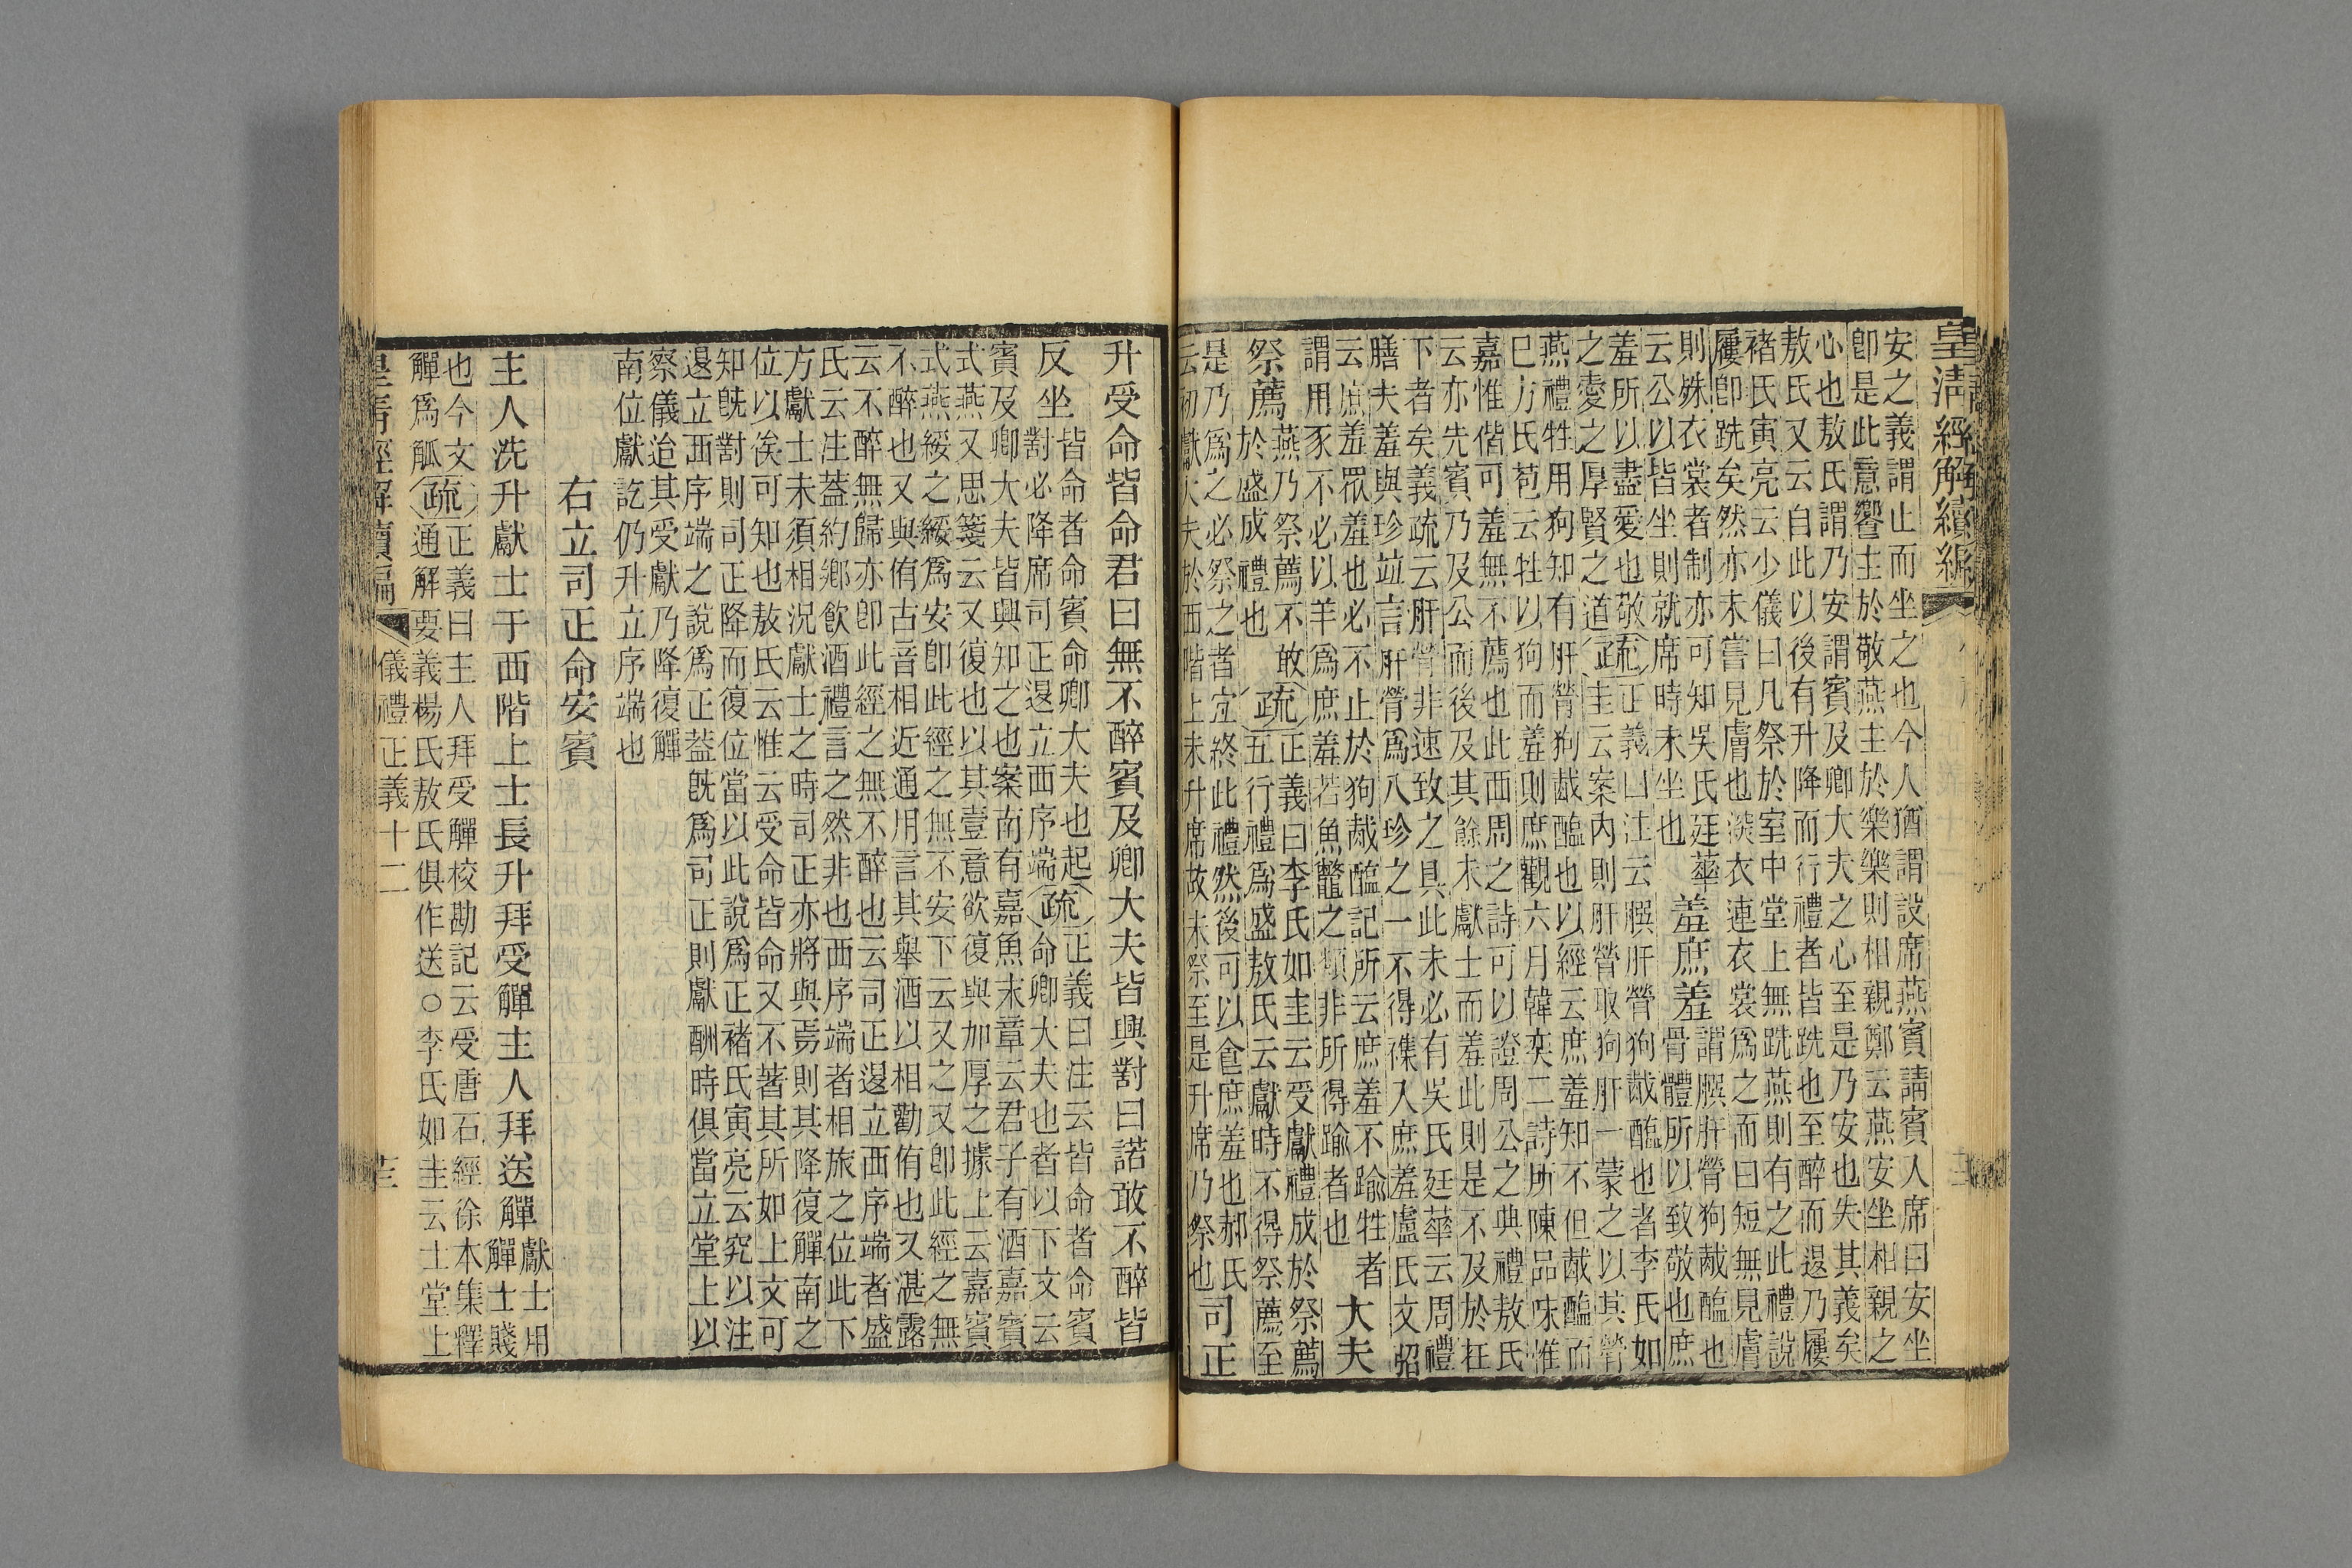 皇清經解續編
安之義謂止而坐之也今人猶謂設席燕賓請賓人席曰安坐
卽是此意響主於敬燕主於樂樂則相親鄭云燕安坐相親之
心也敖氏謂乃安謂賓及卿大夫之心至是乃安也失其義矣
敖氏又云自此以後有升降而行禮者皆跣也至醉而退乃屨
褚氏寅亮云少儀曰凡祭於室中堂上無跣燕則有之此禮說
屨卽跣矣然亦未嘗見膚也深衣連衣裳爲之而曰短無見膚
則殊衣裳者制亦可知吳氏廷華
云公以皆坐則就席時未坐也
羞庶羞
謂膴肝膋狗胾醢也
骨體所以致敬也庶
羞所以盡愛也敬
之愛之厚賢之道
疏
正義曰注云膴肝膋狗胾醢也者李氏如
圭云案內則肝膋取狗肝一蒙之以其膋
燕禮牲用狗知有肝膋狗胾醢也以經云庶羞知不但胾醢而
已方氏苞云牲以狗而羞則庶觀六月韓奕二詩所陳品味惟
嘉惟偕可羞無不薦也此西周之詩可以證周公之典禮敖氏
云亦先賓乃及公而後及其餘未獻士而羞此則是不及於在
下者矣義疏云肝膋非速致之具此未必有吳氏廷華云周禮
膳夫羞與珍竝言肝膋爲八珍之一不得襍入庶羞盧氏文弨
云庶羞眾羞也必不止於狗胾醢記所云庶羞不踰牲者
謂用豕不必以羊爲庶羞若魚鼈之類非所得踰者也
大夫
祭薦
燕乃祭薦不敢
於盛成禮也
疏
正義曰李氏如圭云受獻禮成於祭薦
五行禮爲盛敖氏云獻時不得祭薦至
是乃爲之必祭之者宜終此禮然後可以食庶羞也郝氏
云初獻大夫於西階上未升席故未祭至是升席乃祭也
司正
升受命皆命君曰無不醉賓及卿大夫皆興對曰諾敢不醉皆
反坐
皆命者命賓命卿大夫也起
對必降席司正退立西序端
疏
正義曰注云皆命者命賓
命卿大夫也者以下文云
賓及卿大夫皆興知之也案南有嘉魚末章云君子有酒嘉賓
式燕又思箋云又復也以其壹意欲復與加厚之據上云嘉賓
式燕綏之綏爲安卽此經之無不安下云又之又卽此經之無
不醉也又與侑古音相近通用言其舉酒以相勸侑也又湛露
云不醉無歸亦卽此經之無不醉也云司正退立西序端者盛
氏云注葢約鄕飮酒禮言之然非也西序端者相旅之位此下
方獻士未須相況獻士之時司正亦將與焉則其降復觶南之
位以俟可知也敖氏云惟云受命皆命又不著其所如上文可
知旣對則司正降而復位當以此說爲正褚氏寅亮云究以注
退立西序端之說爲正葢旣爲司正則獻酬時俱當立堂上以
察儀迨其受獻乃降復觶
南位獻訖仍升立序端也
右立司正命安賓
主人洗升獻士于西階上士長升拜受觶主人拜送觶
獻士用
觶士賤
也今文
觶爲觚
疏
正義曰主人拜受觶校勘記云受唐石經徐本集釋
通解要義楊氏敖氏俱作送○李氏如圭云士堂上
皇清經解續編
儀禮正義十二